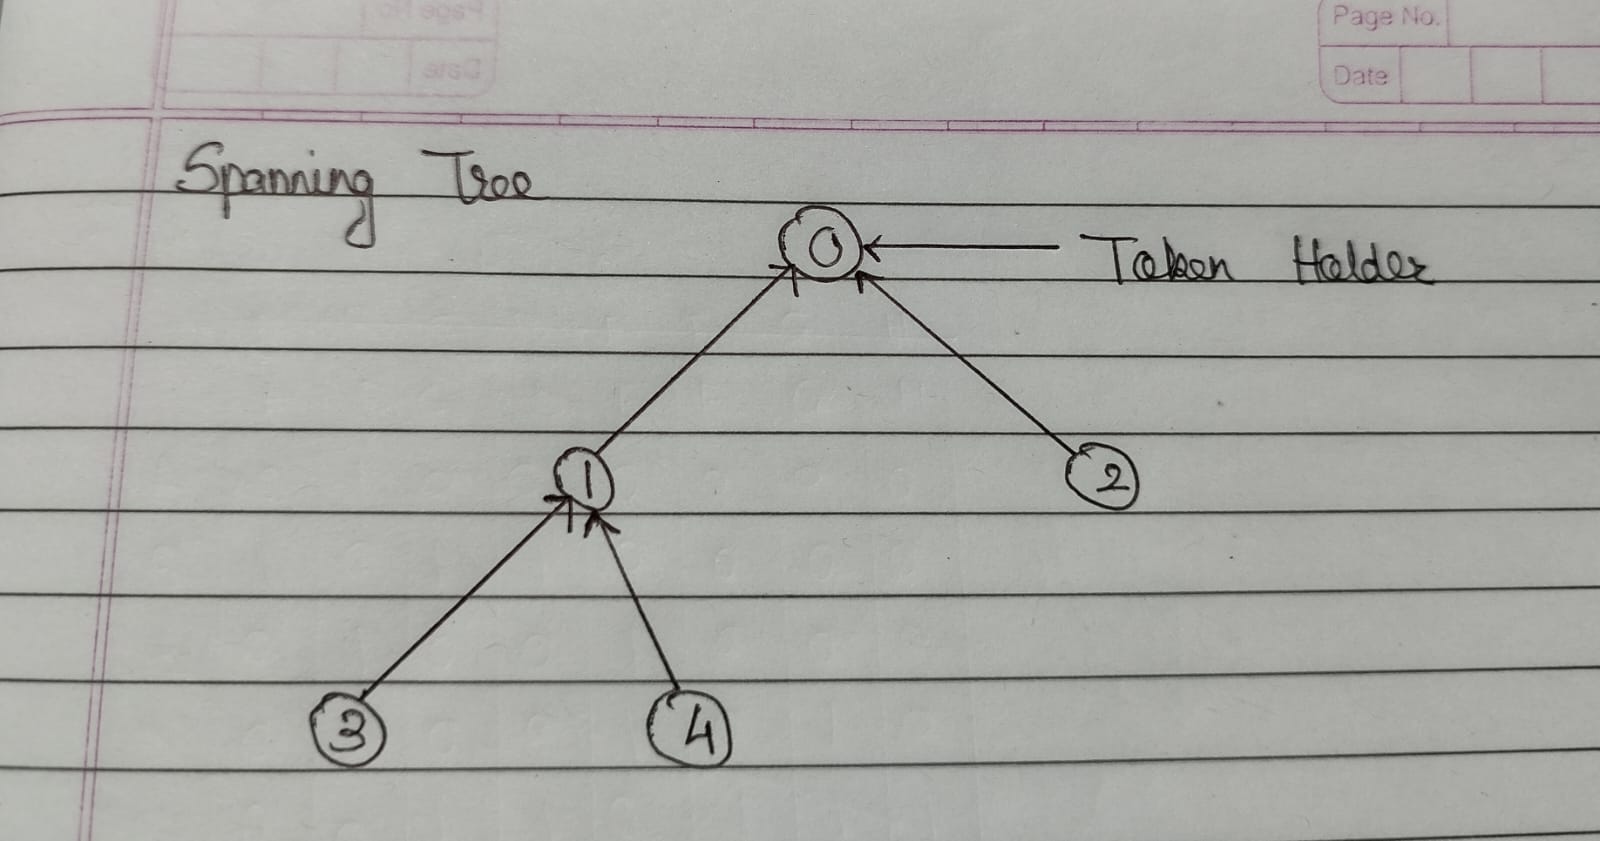 Page No.
Date
Spanning Tree
0
Token Holder
1
2
3
4